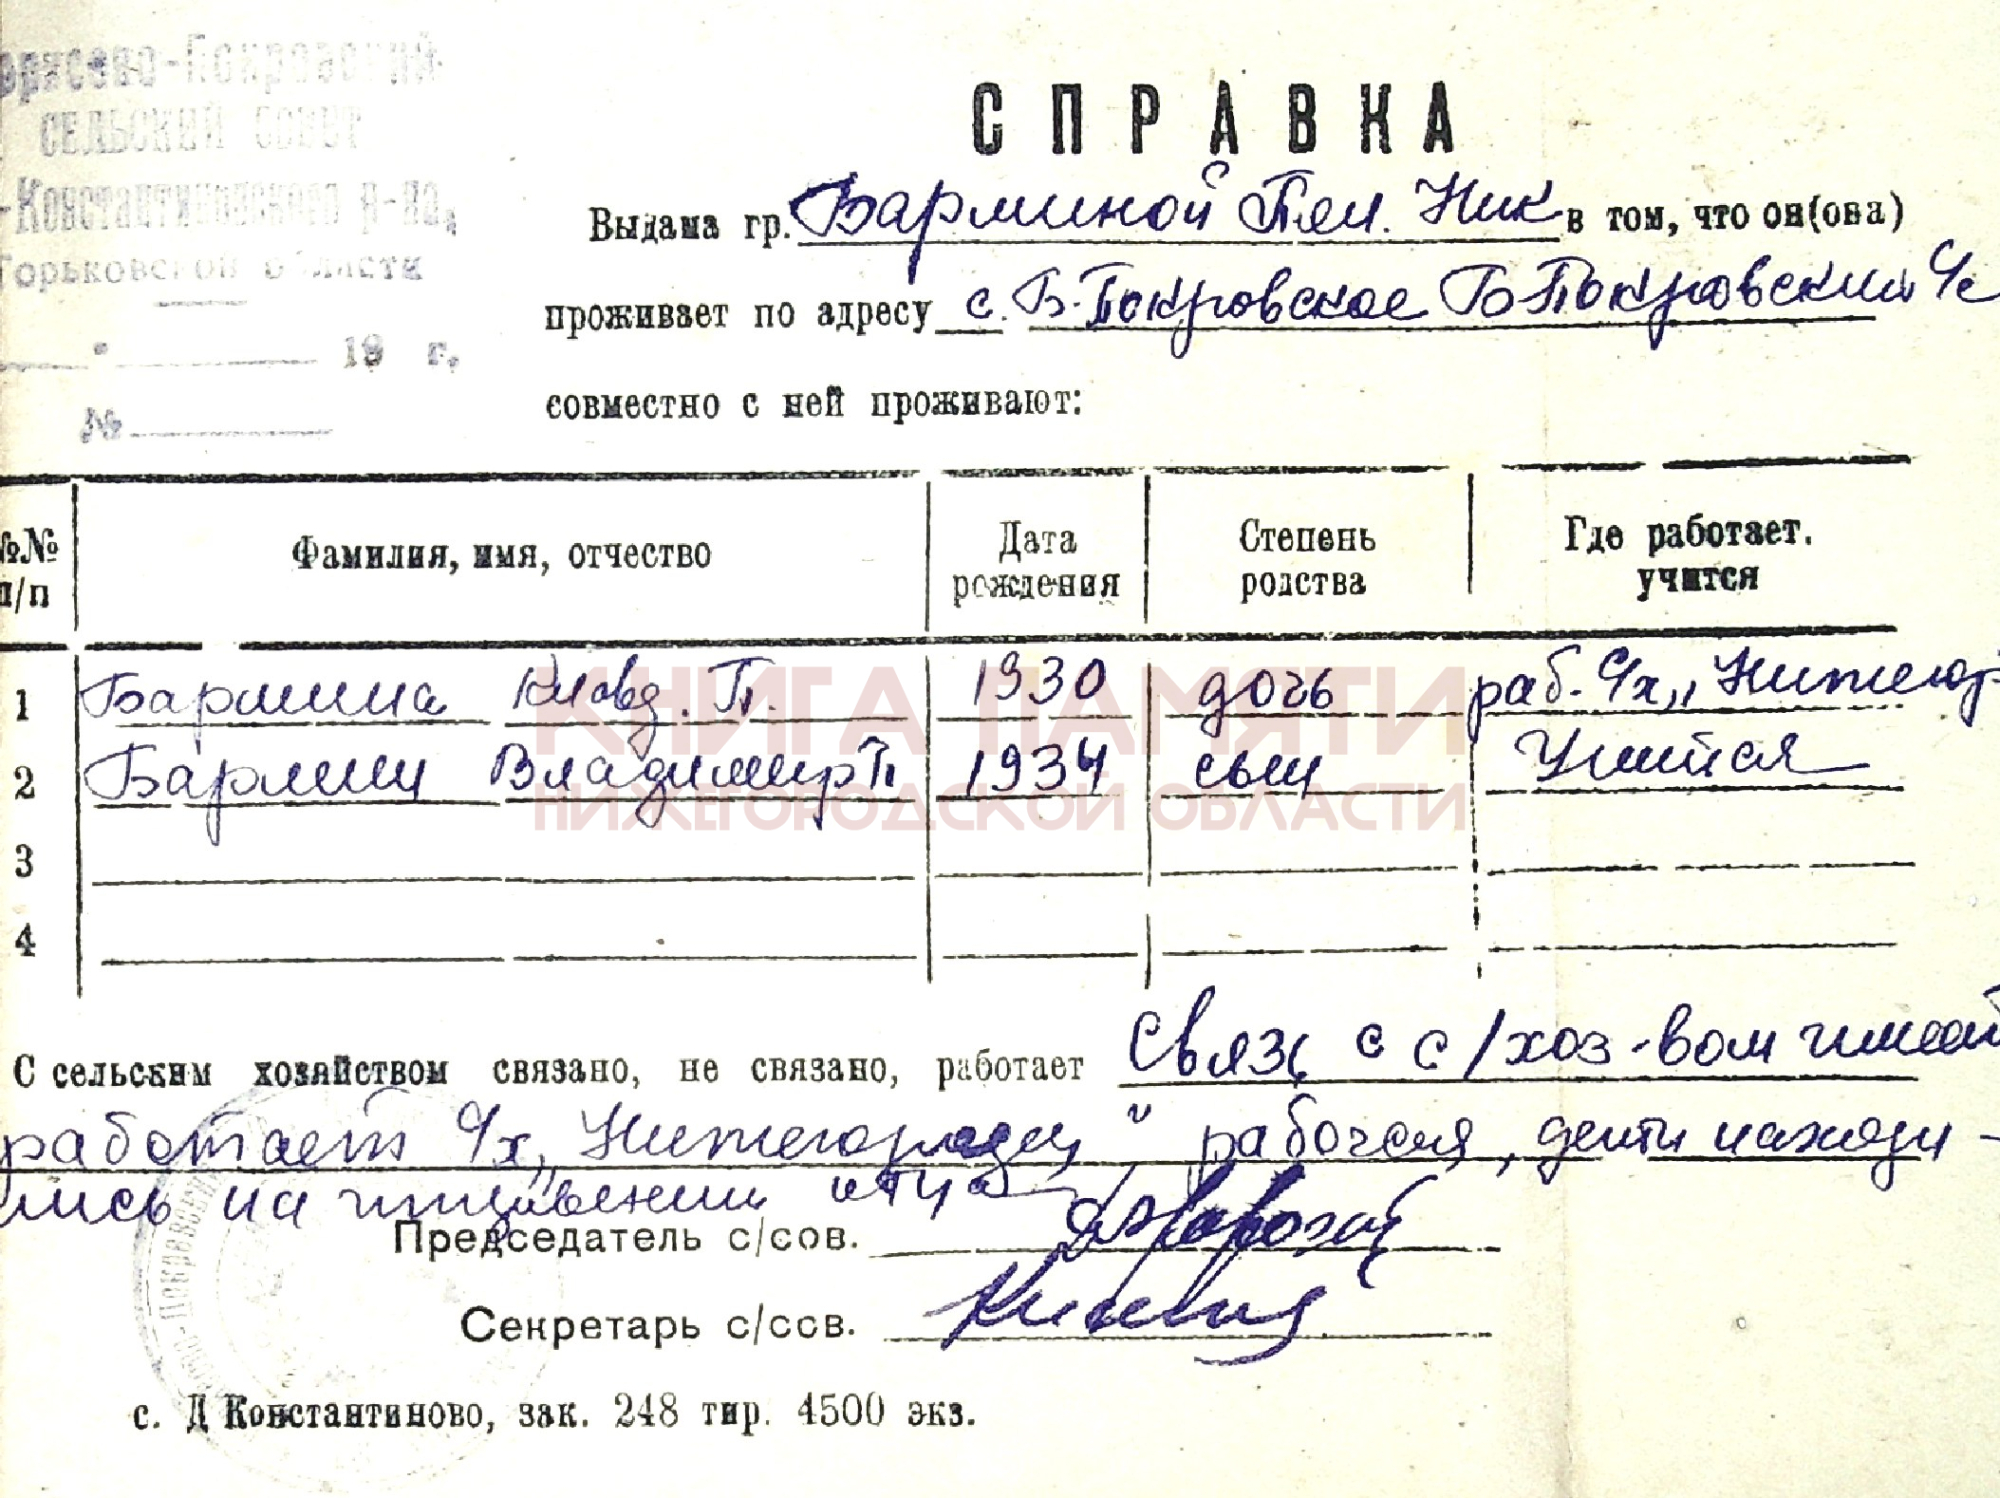 орисово-Покровский
СЕЛЬСКИЙ СОВЕТ
-Константиновского р-на,
Горьковской области
19 г.
№
СПРАВКА
Выдана гр. Барминой Пел. Ник в том, что он(она)
проживает по адресу с. Б-Покровское Б-Покровский с/с
совместно с ней проживают:
№№ п/п Фамилия, имя, отчество Дата рождения Степень родства Где работает. учится
1 Бармина Клавд. П. 1930 дочь раб. с/х „Нижегор
2 Бармин Владимир П 1934 сын Учится
3
4
С сельским хозяйством связано, не связано, работает Связь с с/хоз-вом имеет
работает с/х „Нижегородец" рабочая, дети находи-
лись на иждивении отца
Председатель с/сов.
Секретарь с/сов.
с. Д Константиново, зак. 248 тир. 4500 экз.
КНИГА ПАМЯТИ
НИЖЕГОРОДСКОЙ ОБЛАСТИ